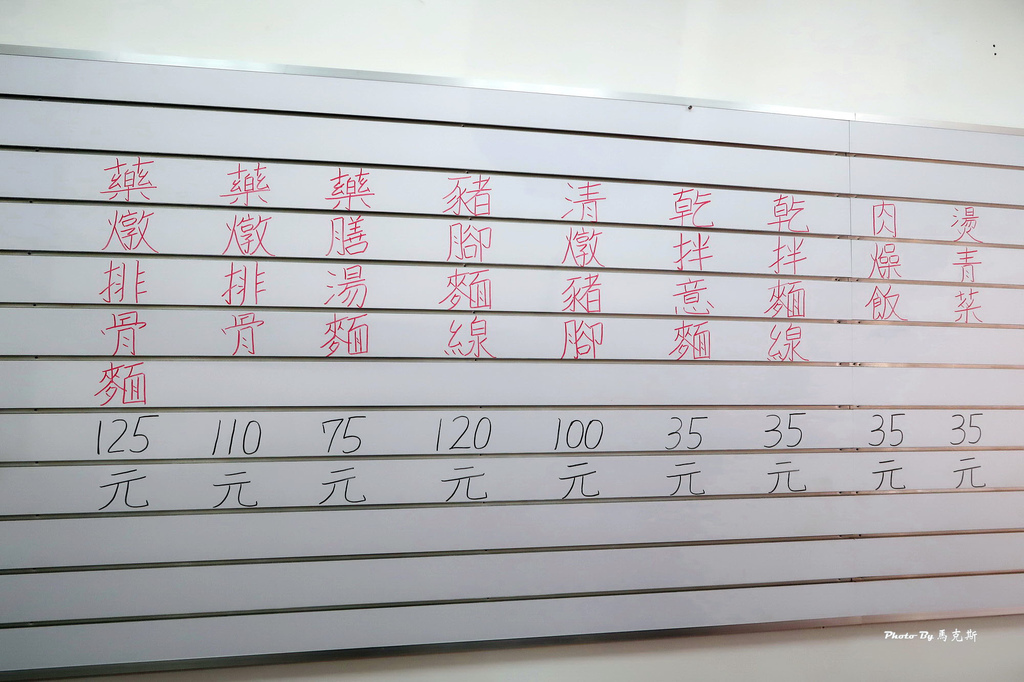 藥燉排骨麵
125元
藥燉排骨
110元
藥膳湯麵
75元
豬腳麵線
120元
清燉豬腳
100元
乾拌意麵
35元
乾拌麵線
35元
肉燥飯
35元
燙青菜
35元
Photo By 馬克斯